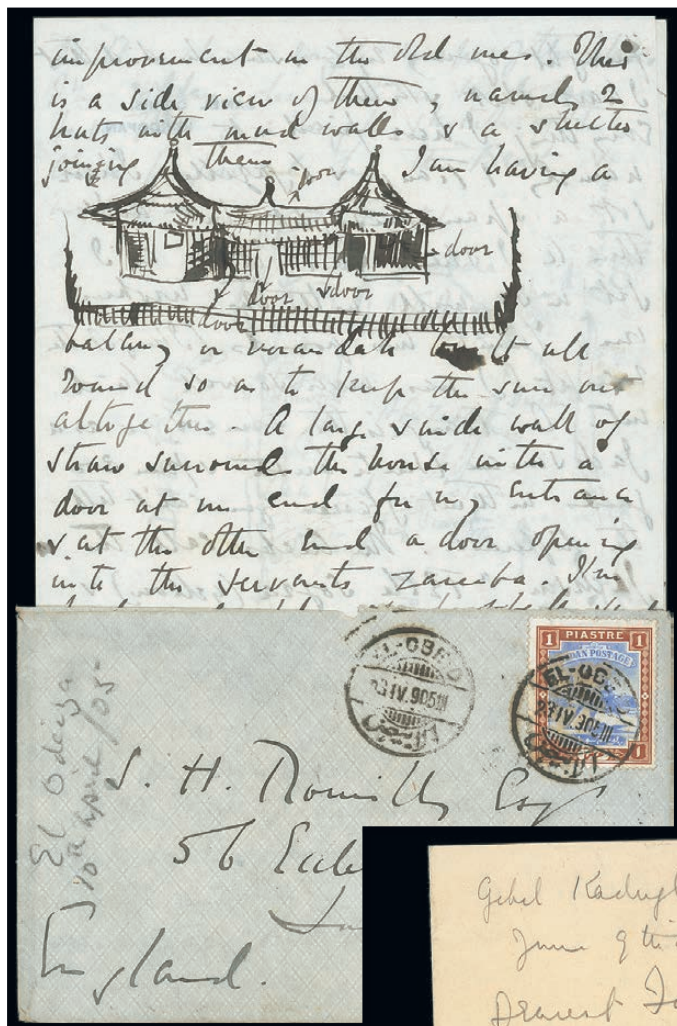 improvement on the old ones. This
is a side view of them, namely 2
huts with mud walls & a shelter
joining them I am having a
door
door
door
door
balcony or verandah built all
round so as to keep the sun out
altogether. A large wall of
straw surrounds the house with a
door at one end for my entrance
& at the other end a door opening
into the servants zareeba. I'm
1 PIASTRE 1
SUDAN POSTAGE
EL-OBEID
23 IV 905
EL-OBEID
23 IV 905
El Odeiya
10th April/05
S. H. Romilly Esq
56
England.
Gebel
June 9th
Dearest